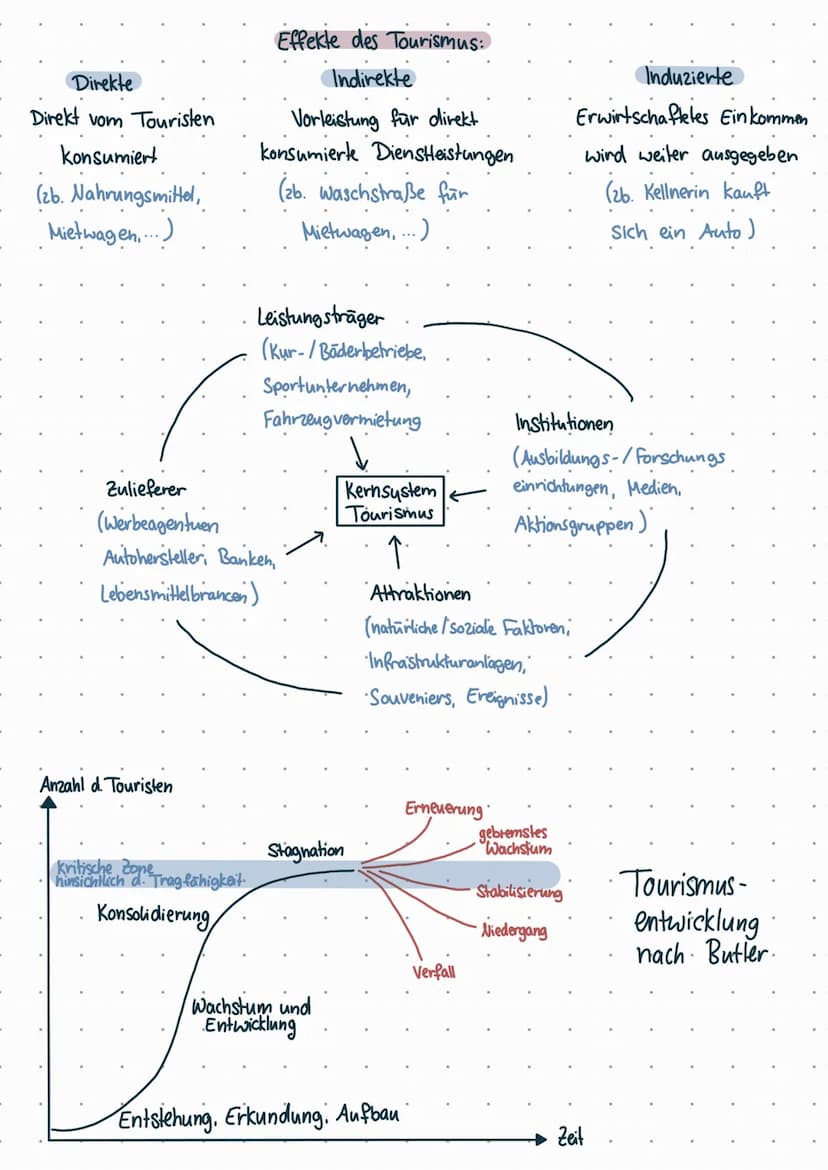 Effekte des Tourismus:
Direkte
Direkt vom Touristen
konsumiert
(zb. Nahrungsmittel,
Mietwagen,...)
Indirekte
Vorleistung für direkt
konsumierte Dienstleistungen
(zb. Waschstraße für
Mietwagen, ...)
Induzierte
Erwirtschaftetes Einkommen
wird weiter ausgegeben
(zb. Kellnerin kauft
sich ein Auto)
Leistungsträger
(Kur-/Bäderbetriebe,
Sportunternehmen,
Fahrzeugvermietung
Institutionen
(Ausbildungs-/Forschungs
einrichtungen, Medien,
Aktionsgruppen)
Zulieferer
(Werbeagentuen
Autohersteller, Banken,
Lebensmittelbrancen)
Kernsystem
Tourismus
Attraktionen
(natürliche/soziale Faktoren,
Infrastrukturanlagen,
Souveniers, Ereignisse)
Anzahl d. Touristen
Erneuerung
gebremstes
Wachstum
Stagnation
kritische Zone
hinsichtlich d. Tragfähigkeit
Stabilisierung
Konsolidierung
Niedergang
Verfall
Tourismus-
entwicklung
nach Butler
Wachstum und
Entwicklung
Entstehung, Erkundung, Aufbau
Zeit